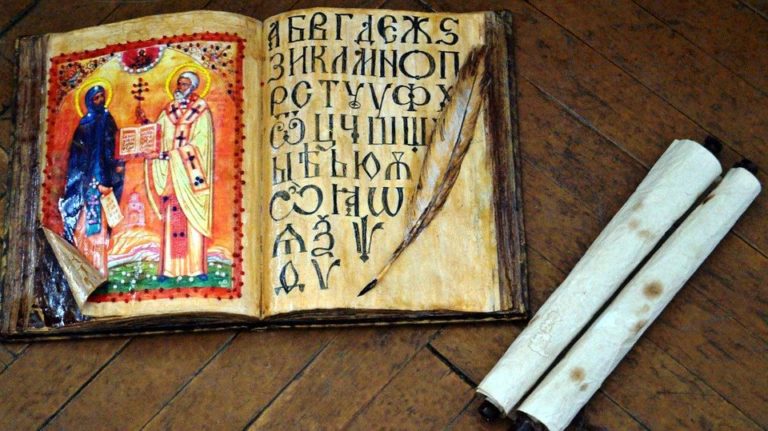 АБВГДЕЖЅ
ЗИКЛМНОП
РСТѸУФХ
ѾЦЧШЩ
ЫѢЬЮѪ
ѼꙖѠ
ѦѮѰ
ѲѴ